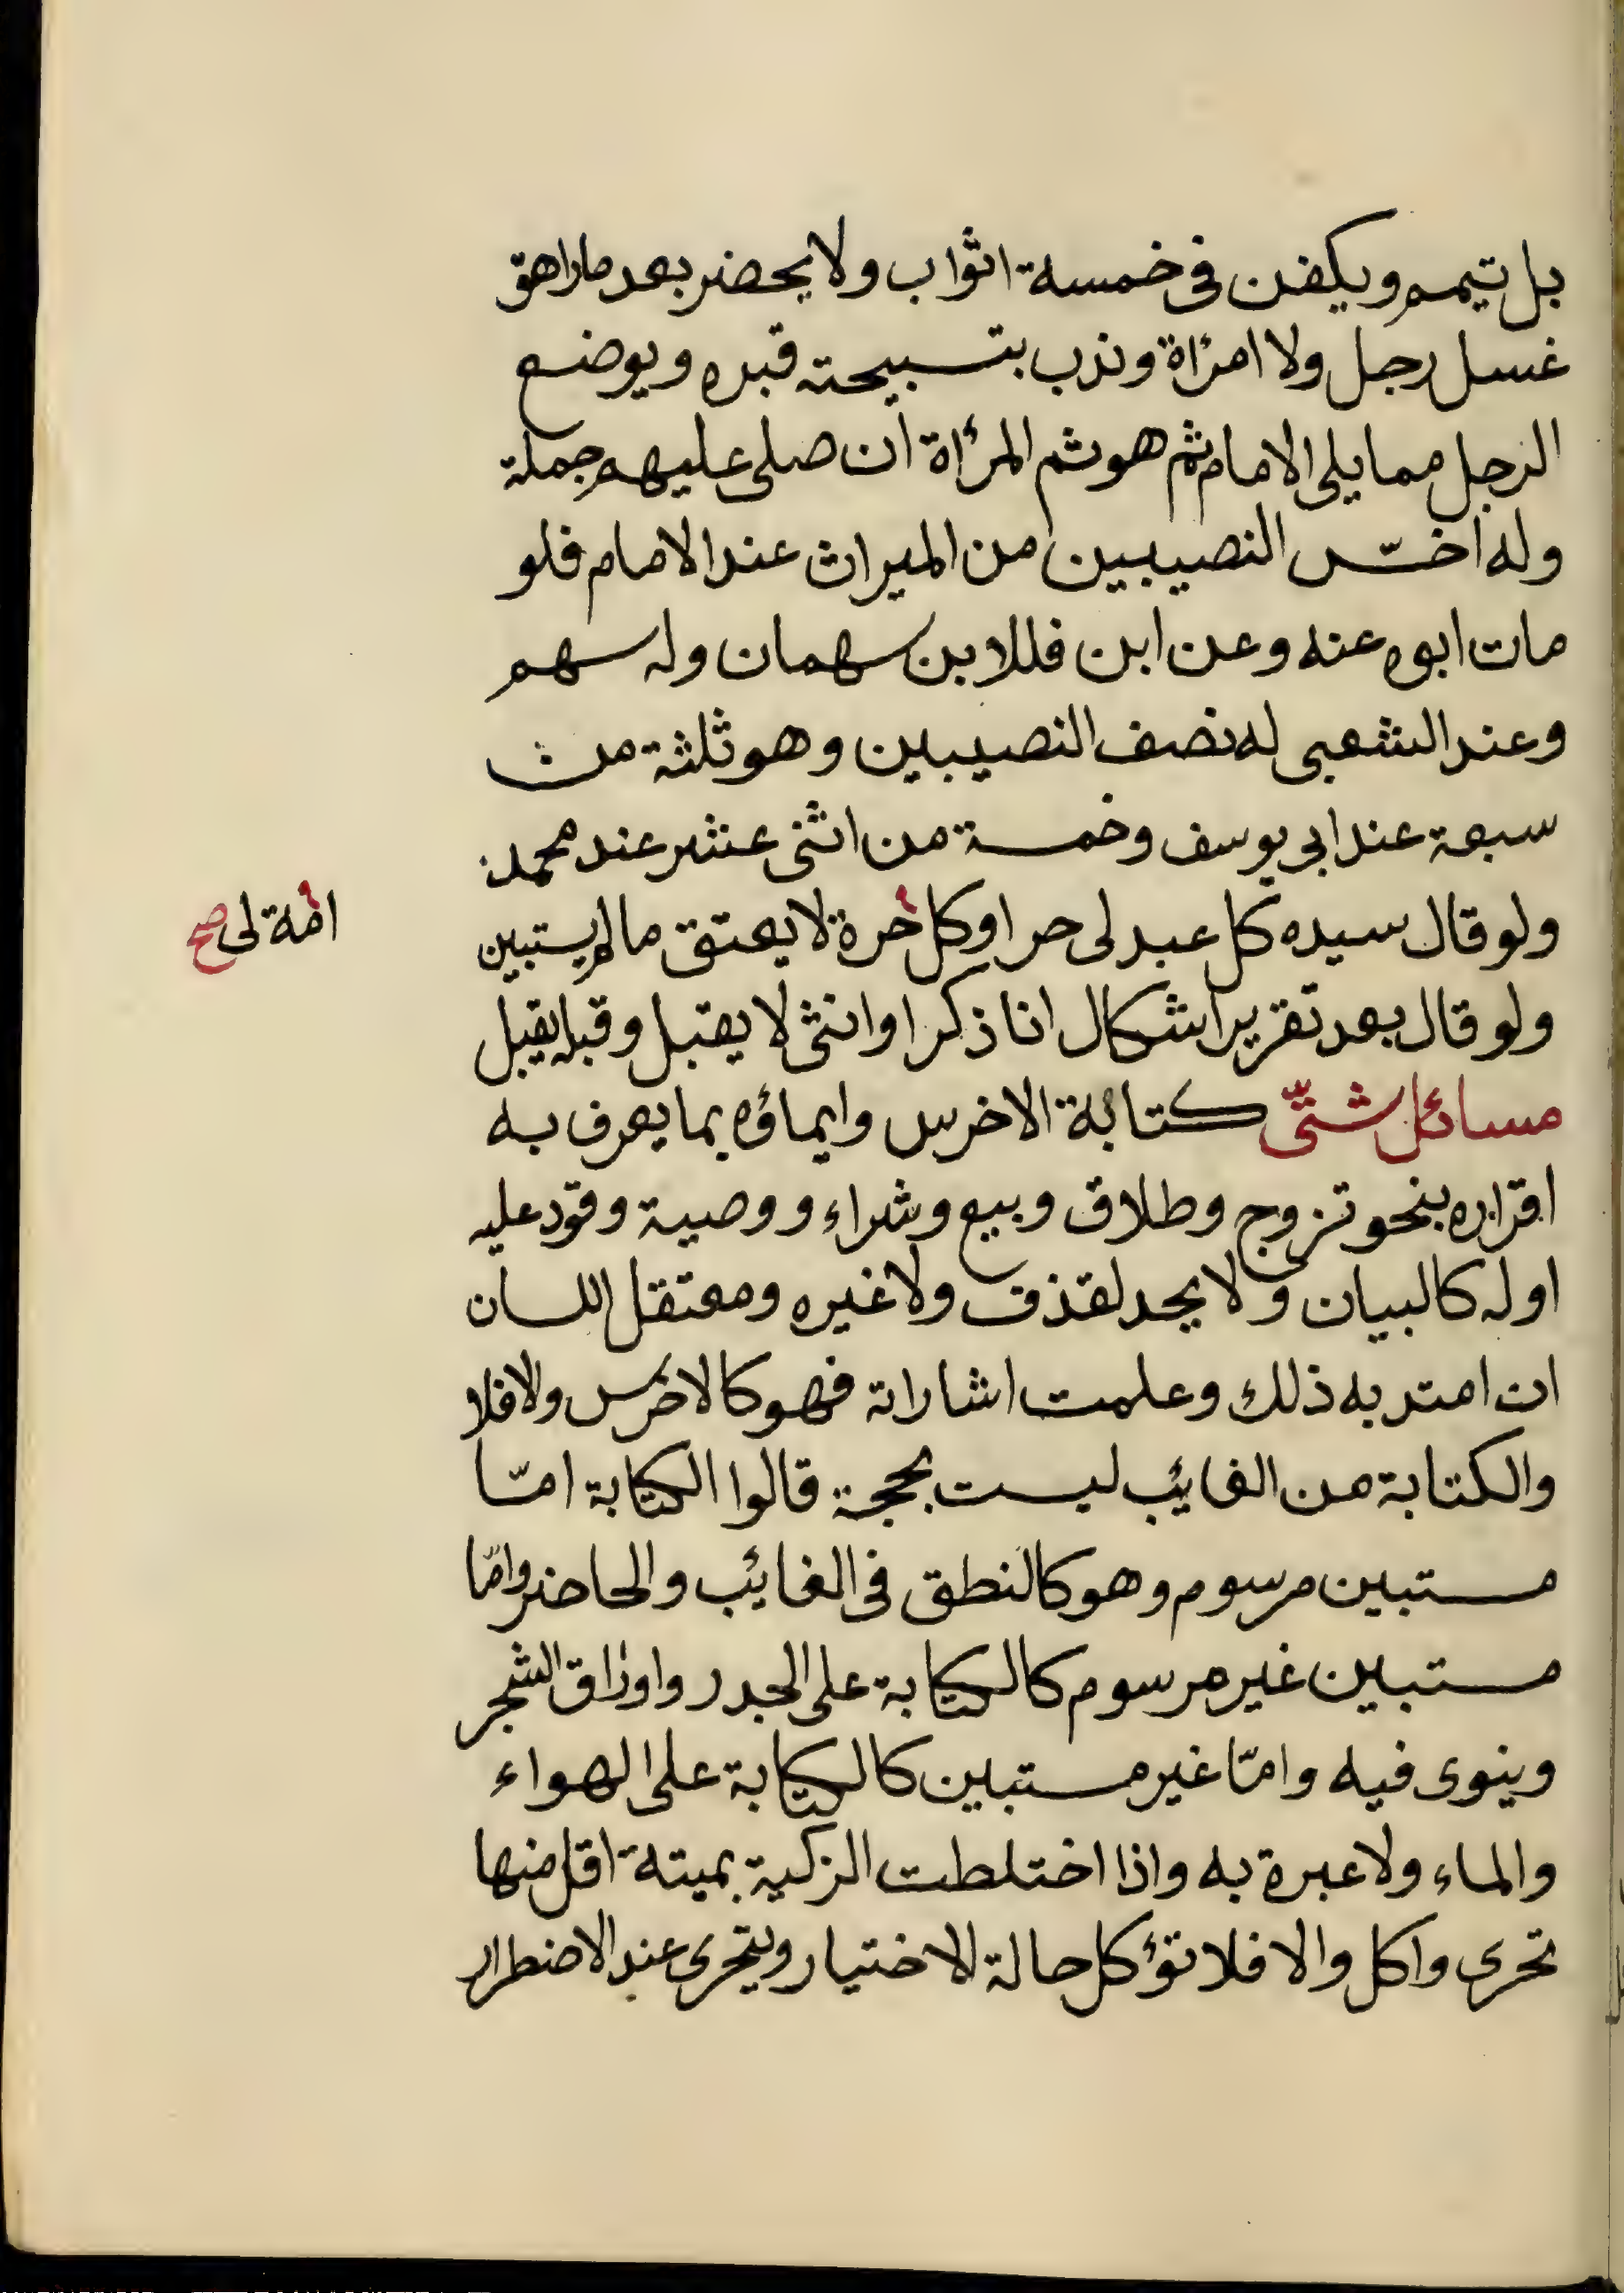 بل تيمم ويكفن فى خمسة اثواب ولا يحضر بعد ما راهق
غسل رجل ولا امرأة وندب بتسبيحته قبره ويوضع
الرجل مما يلى الامام ثم هو ثم المرأة ان صلى عليهم جملة
وله اخسّ النصيبين من الميراث عند الامام فلو
مات ابوه عنه وعن ابن فللابن سهمان وله سهم
وعند الشعبى له نصف النصيبين وهو ثلثة من
سبعة عند ابى يوسف وخمسة من اثنى عشر عند محمد
ولو قال سيده كل عبد لى حر او كل حرة لا يعتق ما لم يستبين
امة لى صح
ولو قال بعد تقرير اشكال انا ذكر او انثى لا يقبل وقبله يقبل
مسائل شتّى كتابة الاخرس وايماؤه بما يعرف به
اقراره بنحو تزوج وطلاق وبيع وشراء ووصية وقود عليه
او له كالبيان ولا يحد لقذف ولا غيره ومعتقل اللسان
ان امتد به ذلك وعلمت اشاراته فهو كالاخرس والا فلا
والكتابة من الغائب ليست بحجة قالوا الكتابة امّا
مستبين مرسوم وهو كالنطق فى الغائب والحاضر وامّا
مستبين غير مرسوم كالكتابة على الجدر واوراق الشجر
وينوى فيه وامّا غير مستبين كالكتابة على الهواء
والماء ولا عبرة به واذا اختلطت الزكية بميتة اقل منها
تحرى واكل والا فلا تؤكل حالة الاختيار ويتحرى عند الاضطرار